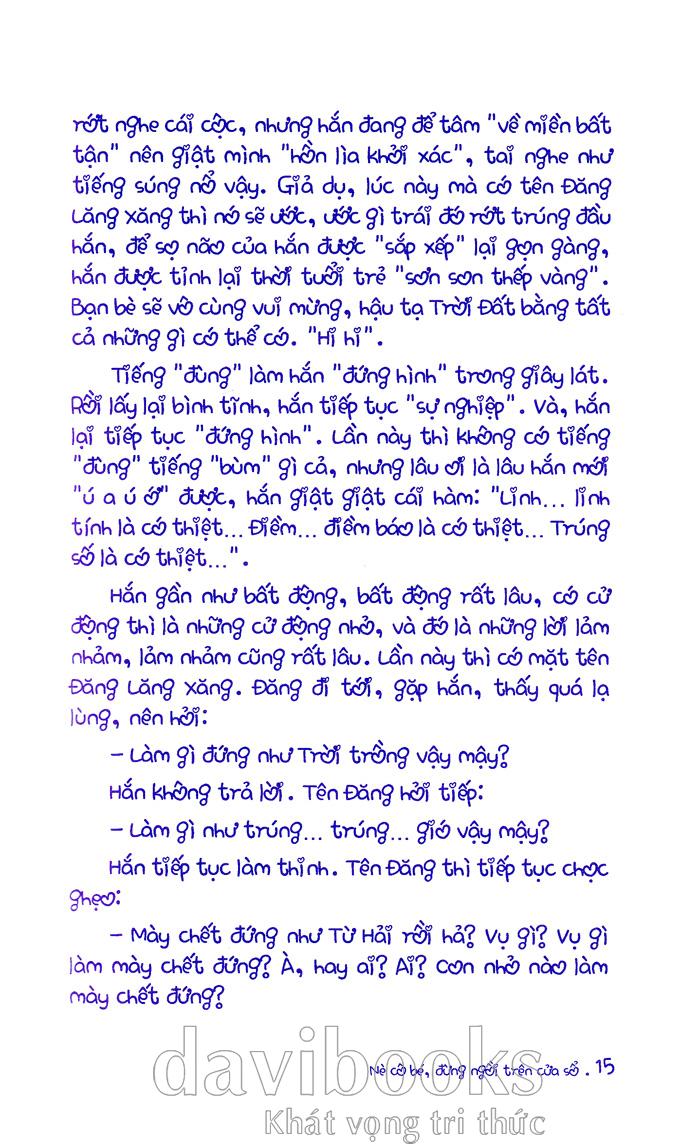 rớt nghe cái cộc, nhưng hắn đang để tâm "về miền bất
tận" nên giật mình "hồn lìa khỏi xác", tai nghe như
tiếng súng nổ vậy. Giả dụ, lúc này mà có tên Đăng
Lăng xăng thì nó sẽ ước, ước gì trái đó rớt trúng đầu
hắn, để sọ não của hắn được "sắp xếp" lại gọn gàng,
hắn được tỉnh lại thời tuổi trẻ "sơn son thếp vàng".
Bạn bè sẽ vô cùng vui mừng, hậu tạ Trời Đất bằng tất
cả những gì có thể có. "Hi hi".
Tiếng "đùng" làm hắn "đứng hình" trong giây lát.
Rồi lấy lại bình tĩnh, hắn tiếp tục "sự nghiệp". Và, hắn
lại tiếp tục "đứng hình". Lần này thì không có tiếng
"đùng" tiếng "bùm" gì cả, nhưng lâu ơi là lâu hắn mới
"ú a ú ớ" được, hắn giật giật cái hàm: "Linh... linh
tính là có thiệt... Điềm... điềm báo là có thiệt... Trúng
số là có thiệt...".
Hắn gần như bất động, bất động rất lâu, có cử
động thì là những cử động nhỏ, và đó là những lời lảm
nhảm, lảm nhảm cũng rất lâu. Lần này thì có mặt tên
Đăng Lăng xăng. Đăng đi tới, gặp hắn, thấy quá lạ
lùng, nên hỏi:
– Làm gì đứng như Trời trồng vậy mậy?
Hắn không trả lời. Tên Đăng hỏi tiếp:
– Làm gì như trúng... trúng... gió vậy mậy?
Hắn tiếp tục làm thinh. Tên Đăng thì tiếp tục chọc
ghẹo:
– Mày chết đứng như Từ Hải rồi hả? Vụ gì? Vụ gì
làm mày chết đứng? À, hay ai? Ai? Con nhỏ nào làm
mày chết đứng?
Nè cô bé, đừng ngồi trên cửa sổ . 15
davibooks
Khát vọng tri thức